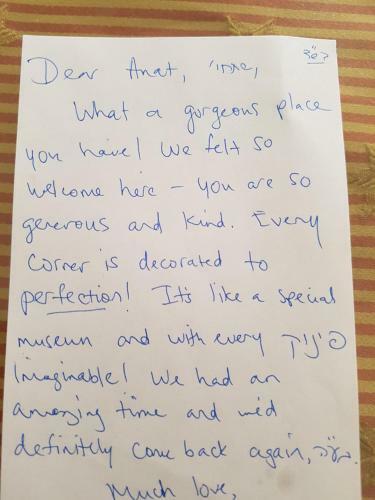 בס״ד
Dear Anat,
What a gorgeous place
you have! We felt so
welcome here - you are so
generous and kind. Every
corner is decorated to
perfection! It's like a special
museum and with every פינוק
imaginable! We had an
amazing time and we'd
definitely come back again,
Much love,